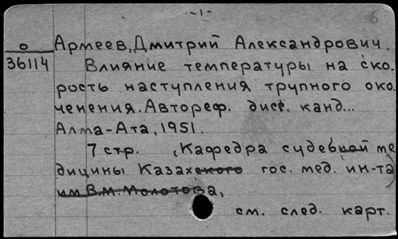 -1- 6
о Армеев, Дмитрий Александрович.
36114 Влияние температуры на ско-
рость наступления трупного око-
ченения. Автореф. дисс. канд...
Алма-Ата, 1951.
7 стр. , Кафедра судебной ме
дицины Казахского гос. мед. ин-та
им В.М. Молотова,
см. след. карт.